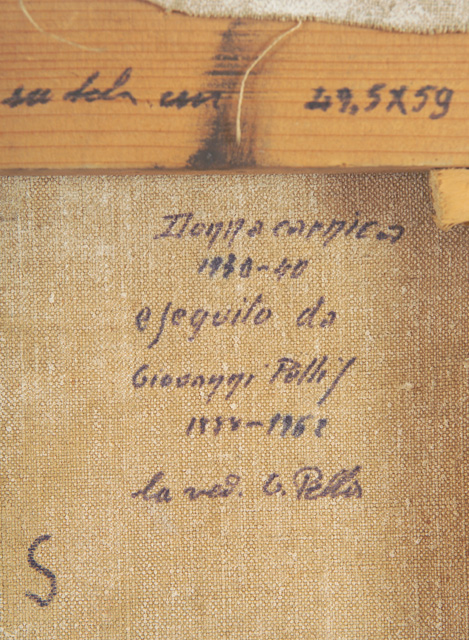 su tela cm 49,5X59
Donna carnica
1930-40
eseguito da
Giovanni Pellis
1888-1962
la ved. G. Pellis
S